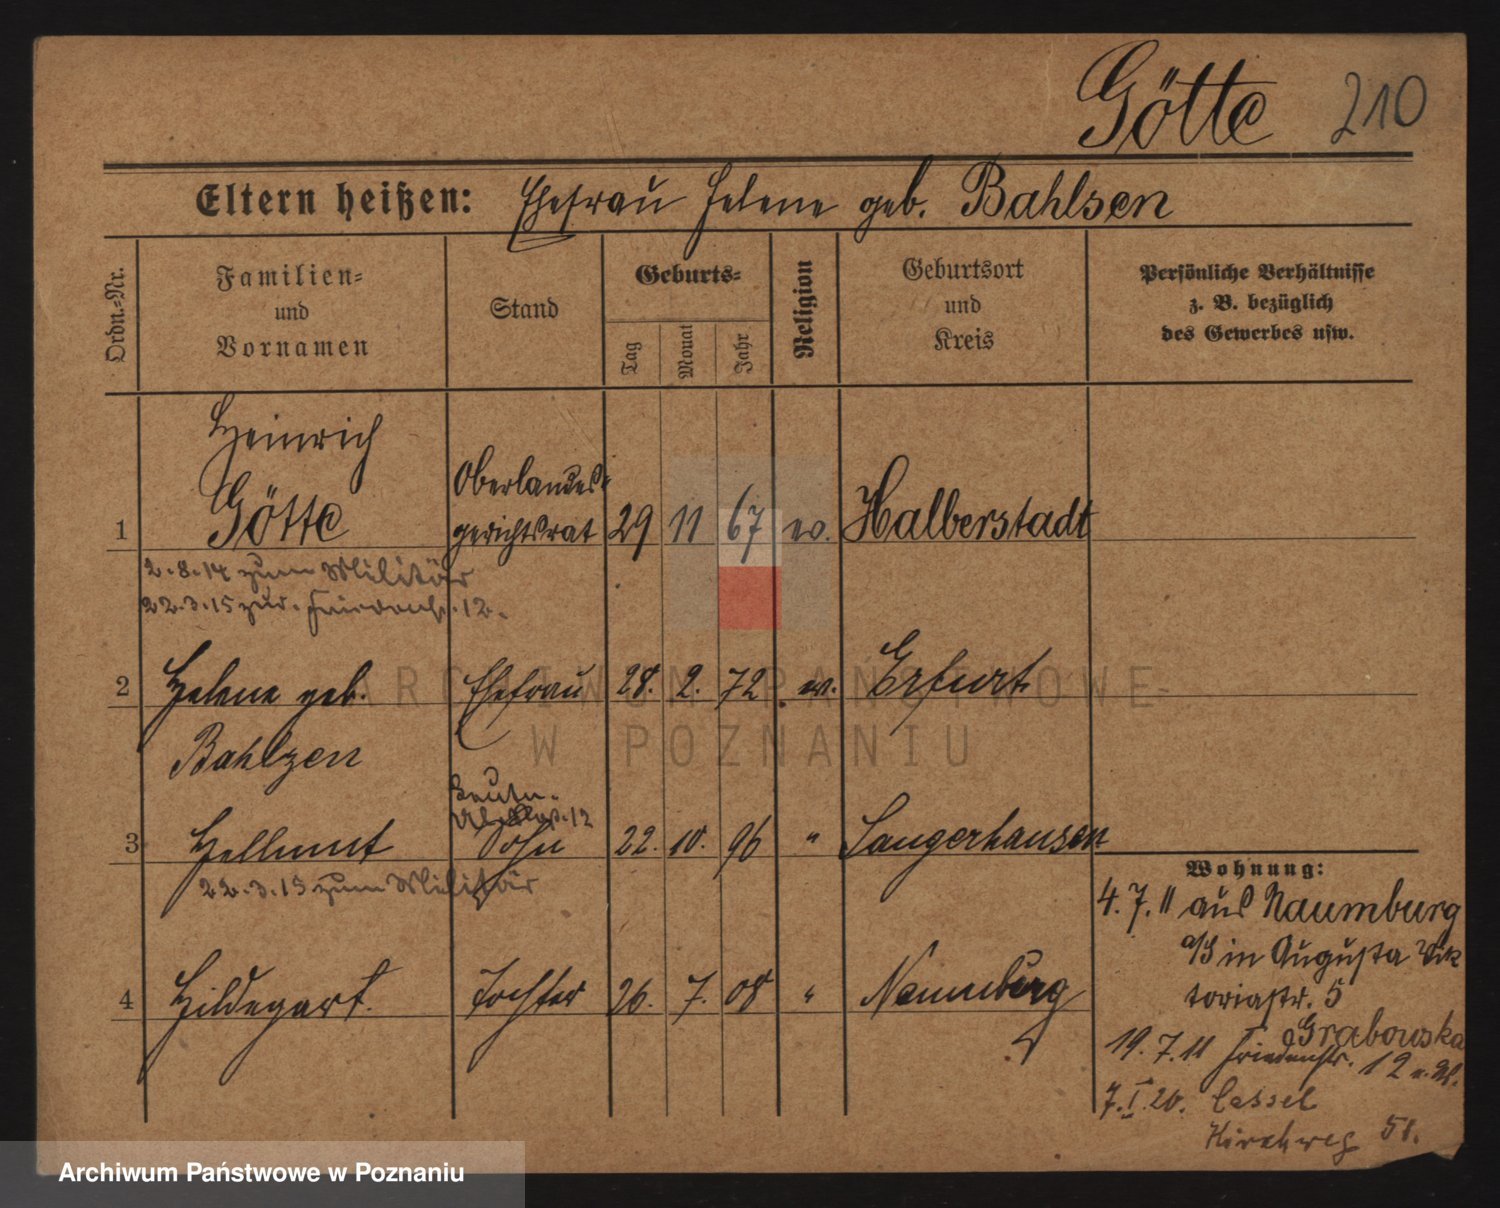 Götte 210
Eltern heißen: Ehefrau Helene geb. Bahlsen
Ordn.=Nr.
Familien=
und
Vornamen
Stand
Geburts=
Tag
Monat
Jahr
Religion
Geburtsort
und
Kreis
Persönliche Verhältnisse
z. B. bezüglich
des Gewerbes usw.
Heinrich
Oberlandes-
1 Götte gerichtsrat 29 11 67 ev. Halberstadt
2.8.14 zum Militär
22.3.15 zur. Friedenstr. 12.
2 Helene geb. Ehefrau 28. 2. 72 ev. Erfurt
Bahlzen
3 Hellmut Sohn 22. 10. 96 " Sangerhausen
22.3.15 zum Militär
4 Hildegart. Tochter 26. 7. 08 " Naumburg
Wohnung:
4.7.11 aus Naumburg
a/S in Augusta Vik
toriastr. 5
Grabowska
19.7.11 Friedenstr. 12
7.I.20. Cassel
Kirchweg 58.
ARCHIWUM PAŃSTWOWE
W POZNANIU
Archiwum Państwowe w Poznaniu